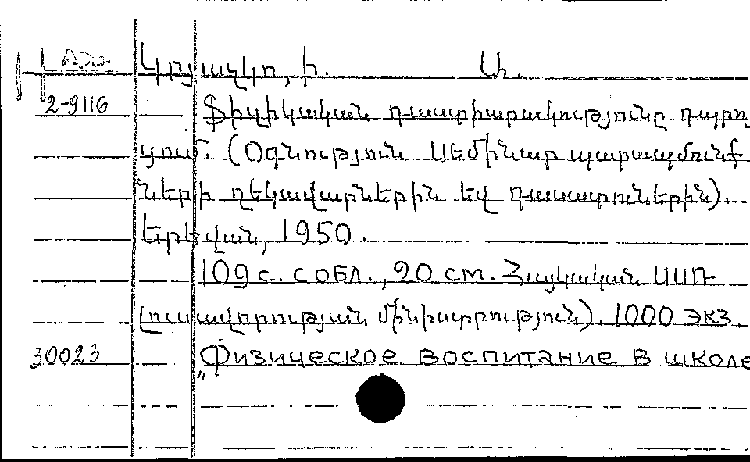 Կոյակկո, Ի. Ա.
2-9116 Ֆիզիկական դաստիարակությունը դպրո
ցում. (Օգնություն սեմինար պարապմունք
ների ղեկավարներին եվ դասատուներին).
Երեվան, 1950.
109 с. с обл., 20 см. Հայկական ՍՍՌ
լուսավորության մինիստրություն). 1000 экз
30023 „Физическое воспитание в школе